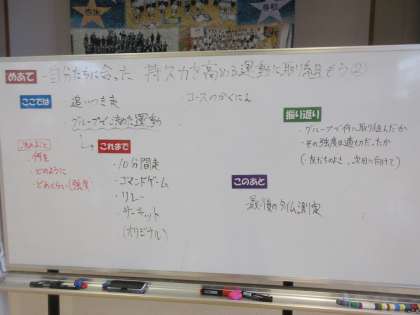 めあて 自分たちに合った 持久力を高める運動に取り組もう②
ここでは ・追いつき走
コースのかくにん
・グループで決めた運動
決めること
・何を
・どのように
・どのくらい(強度)
これまで
・10分間走
・コマンドゲーム
・リレー
・サーキット
(オリジナル)
振り返り
・グループで何に取り組んだか
・その強度は適切だったか
(友だちのよさ、次回に向けて)
このあと
・最後のタイム測定